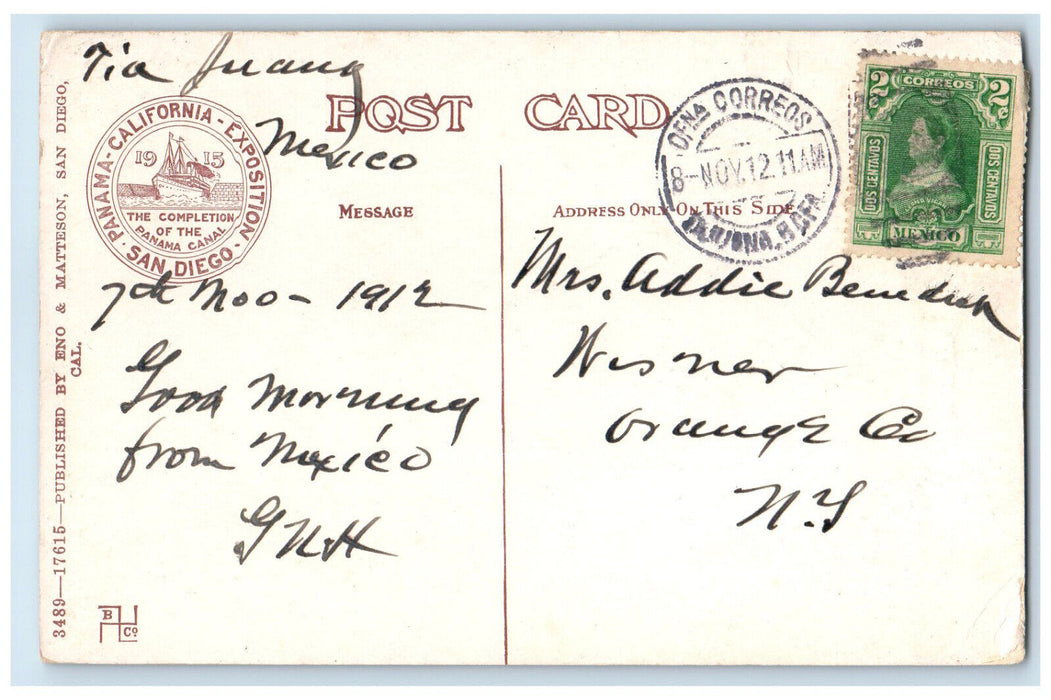 Tia Juana
Mexico
POST CARD
PANAMA-CALIFORNIA-EXPOSITION
1915
THE COMPLETION
OF THE
PANAMA CANAL
SAN DIEGO
MESSAGE
ADDRESS ONLY ON THIS SIDE
OFNA CORREOS
8-NOV.12.11AM
2c CORREOS 2c
DOS CENTAVOS
DOS CENTAVOS
MEXICO
7th Nov - 1912
Good Morning
from Mexico
GNH
Mrs. Addie Benedict
Wisner
Orange Co
N.Y
3489—17615—PUBLISHED BY ENO & MATTESON, SAN DIEGO,
CAL.
B
Co